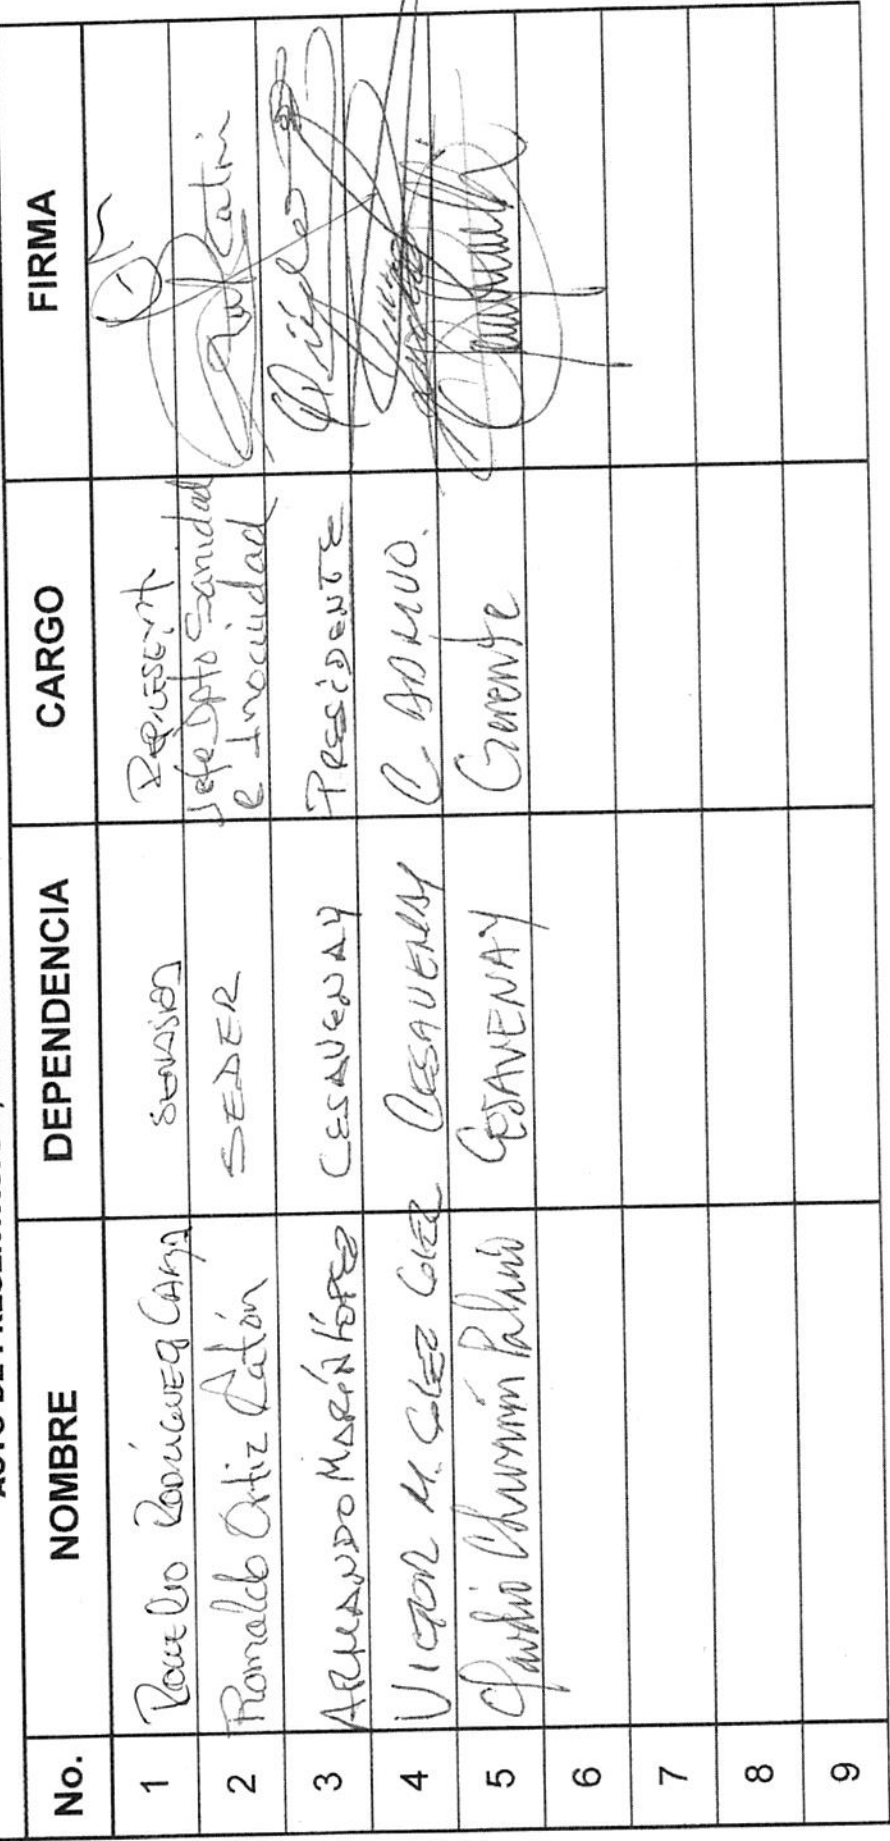 ACTO DE
No. NOMBRE DEPENDENCIA CARGO FIRMA
1 Rogelio Rodríguez Garza SENASICA Represent
2 Romaldo Ortiz Catón SEDER Jefe Dpto Sanidad
e Inocuidad
3 ARMANDO MARÍN LÓPEZ CESAVENAY PRESIDENTE
4 VICTOR M. Glez Glez CESAVENAY C ADMVO.
5 Claudio CESAVENAY Gerente
6
7
8
9